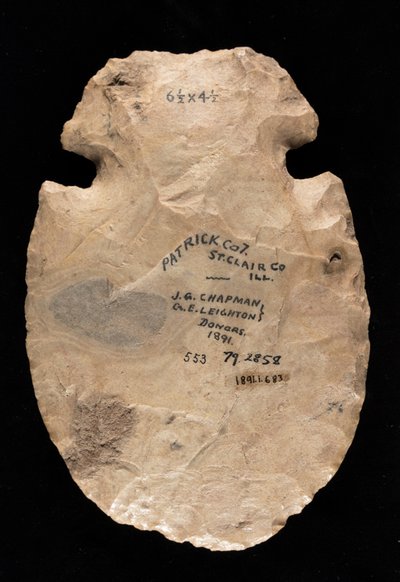 6½x4½
PATRICK Col.
ST. CLAIR CO
ILL.
J. G. CHAPMAN
G. E. LEIGHTON
Donors.
1891.
553 79.2858
1891.1.683